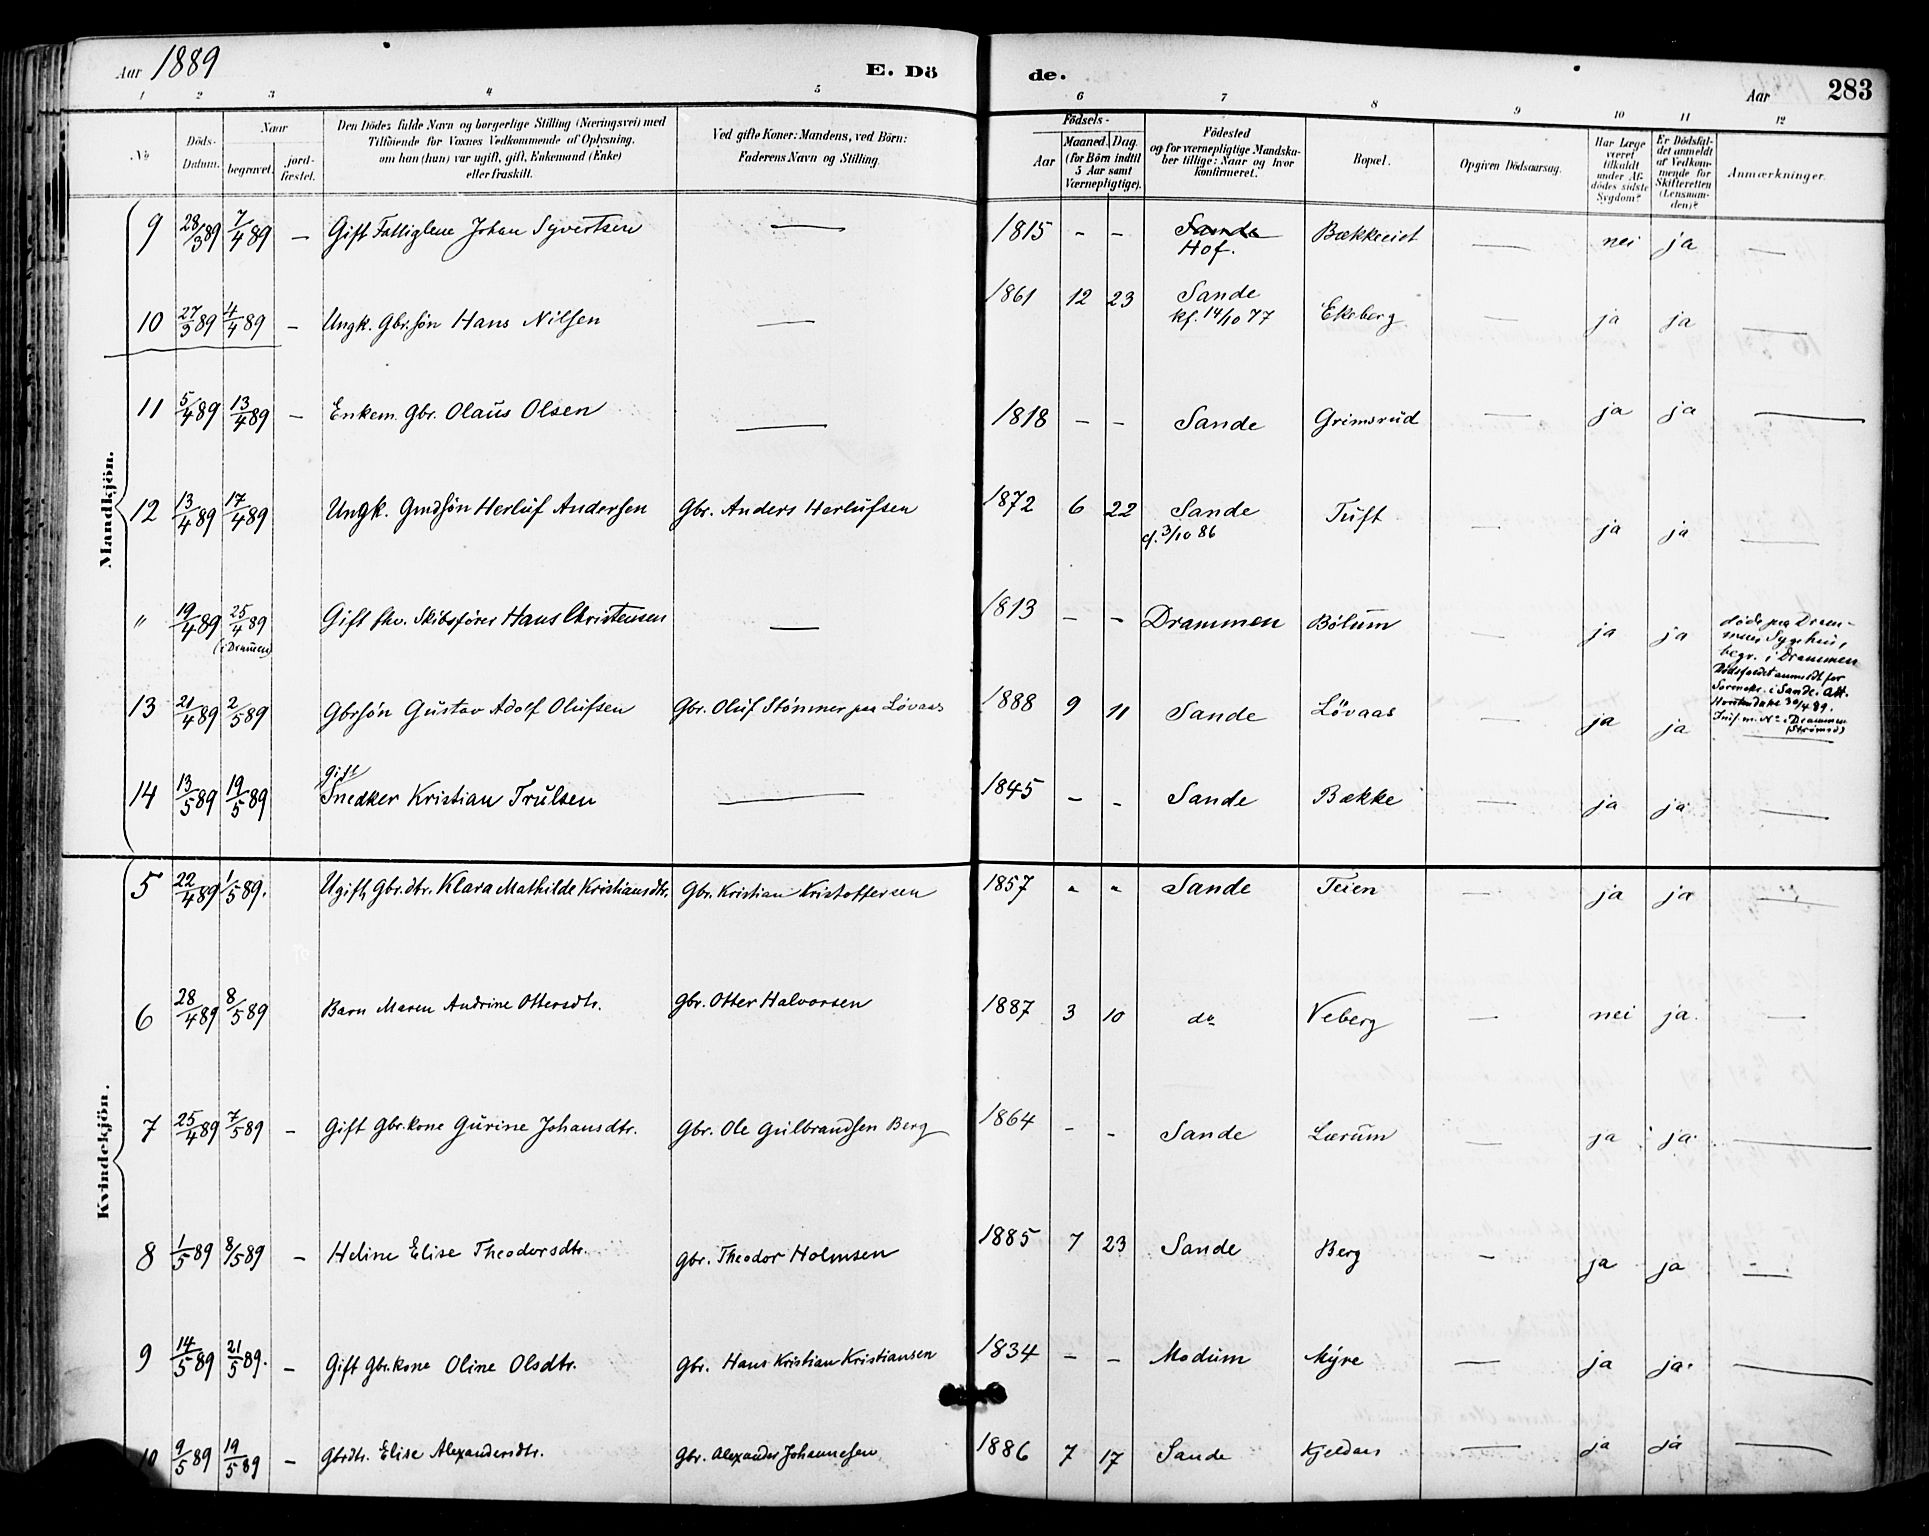 Aar 1889 E. Dö de. Aar 283
1 2 3 4 5 6 7 8 9 10 11 12
No
Döds-Datum.
Naar
begravet.
jord-fæstet.
Den Dödes fulde Navn og borgerlige Stilling (Næringsvei) med
Tilföiende for Voxnes Vedkommende af Oplysning,
om han (hun) var ugift, gift, Enkemand (Enke)
eller fraskilt.
Ved gifte Koner: Mandens, ved Börn:
Faderens Navn og Stilling.
Födsels-
Aar
Maaned. Dag.
(for Börn indtil
5 Aar samt
Værnepligtige).
Födested
og for værnepligtige Mandska-
ber tillige: Naar og hvor
konfirmeret.
Bopæl.
Opgiven Dödsaarsag.
Har Læge
været
tilkaldt
under Af-
dödes sidste
Sygdom?
Er Dödsfal-
det anmeldt
af Vedkom-
mende for
Skifteretten
(Lensman-
den)?
Anmærkninger.
Mandkjön.
9 28/3 89 7/4 89 — Gift Fattiglem Johan Syvertsen — 1815 - - Sande Hof. Bækkeeiet — nei ja —
10 27/3 89 4/4 89 — Ungk. Gbr.søn Hans Nilsen — 1861 12 23 Sande Ekeberg ja ja —
kf. 14/10 77
11 5/4 89 13/4 89 — Enkem. Gbr. Olaus Olsen — 1818 - - Sande Grimsrud — ja ja —
12 13/4 89 17/4 89 Ungk. Gmdsøn Herluf Andersen Gbr. Anders Herlufsen 1872 6 22 Sande Tuft — ja ja —
cf. 3/10 86
" 19/4 89 25/4 89 Gift fhv. Skibsfører Hans Christensen — 1813 - - Drammen Bølum — ja ja
(i Drammen)
døde paa Dram-
mens Sygehus,
begr. i Drammen
Dødsfaldet anmeldt for
Sorenskr. i Sande. Att.
30/4 89.
13 21/4 89 2/5 89 Gbrsøn Gustav Adolf Olufsen Gbr. Oluf Stømner paa Løvaas 1888 9 11 Sande Løvaas — ja ja —
14 13/5 89 19/5 89 gift
Snedker Kristian Trulsen — 1845 - - Sande Bække — ja ja —
Kvindekjön.
5 22/4 89 1/5 89. Ugift Gbr.dtr. Klara Mathilde Kristiansdtr. Gbr. Kristian Kristoffersen 1857 " " Sande Teien — ja ja —
6 28/4 89 8/5 89 Barn Maren Andrine Ottersdtr. Gbr. Otter Halvorsen 1887 3 10 do Veberg — nei ja. —
7 25/4 89 7/5 89 — Gift Gbr.kone Gurine Johansdtr. Gbr. Ole Gulbrandsen Berg 1864 - - Sande Lærum — ja ja. —
8 1/5 89 8/5 89 — Heline Elise Theodorsdtr. Gbr. Theodor Holmsen 1885 7 23 Sande Berg — ja ja —
9 14/5 89 21/5 89. — Gift Gbr.kone Oline Olsdtr. Gbr. Hans Kristian Kristiansen 1834 - - Modum Myre — ja ja. —
10 9/5 89 19/5 89 — Gbrdtr. Elise Alexandersdtr. Gbr. Alexander Johannesen 1886 7 17 Sande Kjeldaas — ja ja —